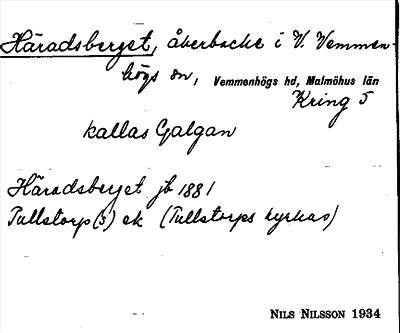 Häradsberget, åkerbacke i V. Vemmen-
högs sn, Vemmenhögs hd, Malmöhus län
Kring 5
kallas Galgan
Häradsberget jb 1881
Tullstorp(s) ek (Tullstorps kyrkas)
NILS NILSSON 1934